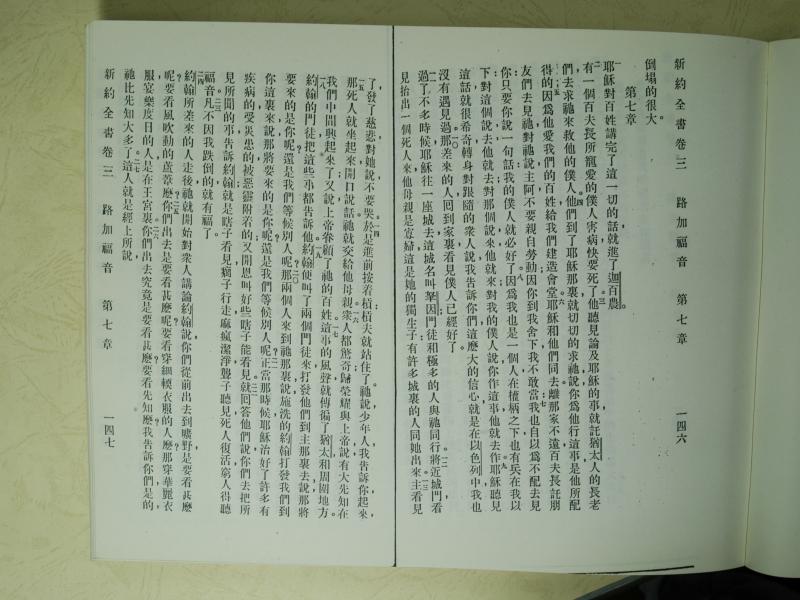 新約全書卷三　路加福音　第七章　一四六
倒塌的很大。
第七章
耶穌對百姓講完了這一切的話就進了迦百農。
有一個百夫長所寵愛的僕人害病快要死了他聽見論及耶穌的事就託猶太人的長老
們去求祂來救他的僕人他們到了耶穌那裏就切切的求祂說你為他行這事是他所配
得的因爲他愛我們的百姓給我們建造會堂耶穌和他們同去離那家不遠百夫長託朋
友們去見祂對祂說主阿不要親自勞動因你到我舍下我不敢當我也自以爲不配去見
你只要你說一句話我的僕人就必好了因爲我也是一個人在權柄之下也有兵在我以
下對這個說去他就去對那個說來他就來對我的僕人說你作這事他就去作耶穌聽見
這話就很希奇轉身對跟隨的衆人說我告訴你們這麽大的信心就是在以色列中我也
沒有遇見過那差來的人囘到家裏看見僕人已經好了
過了不多時候耶穌往一座城去這城名叫拏因門徒和極多的人與祂同行將近城門看
見抬出一個死人來他母親是寡婦這是她的獨生子有許多城裏的人同她出來主看見
了發了慈悲對她說不要哭於是進前按着槓槓夫就站住了祂說少年人我告訴你起來
那死人就坐起來開口說話祂就交給他母親衆人都驚奇歸榮耀與上帝說有大先知在
我們中間興起來了又說上帝眷顧了祂的百姓這事的風聲就傳徧了猶太和周圍地方
約翰的門徒把這些事都告訴他約翰便叫了兩個門徒來打發他們到主那裏去說那將
要來的是你呢還是我們等候別人呢那兩個人來到祂那裏說施洗的約翰打發我們到
你這裏來說那將要來的是你呢還是我們等候別人呢正當那時候耶穌治好了許多有
疾病的受災患的被惡靈附着的又開恩叫好些瞎子能看見就回答他們說你們去把所
見所聞的事告訴約翰就是瞎子看見瘸子行走麻瘋潔淨聾子聽見死人復活窮人得聽
福音凡不因我跌倒的就有福了
約翰所差來的人走後祂就開始對衆人講論約翰說你們從前出去到曠野是要看甚麽
呢要看風吹動的蘆葦麽你們出去是要看甚麽呢要看穿細輭衣服的人麽那穿華麗衣
服宴樂度日的人是在王宮裏你們出去究竟是要看甚麽要看先知麽我告訴你們是的
祂比先知大多了這人就是經上所說
新約全書卷三　路加福音　第七章　一四七